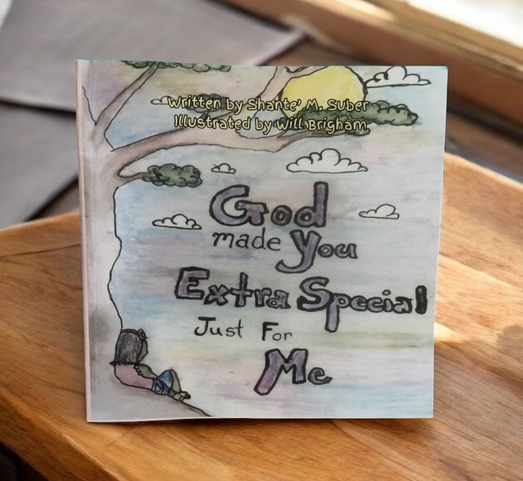 Written by Shante' M. Suber
Illustrated by Will Brigham
God
made You
Extra Special
Just For
Me